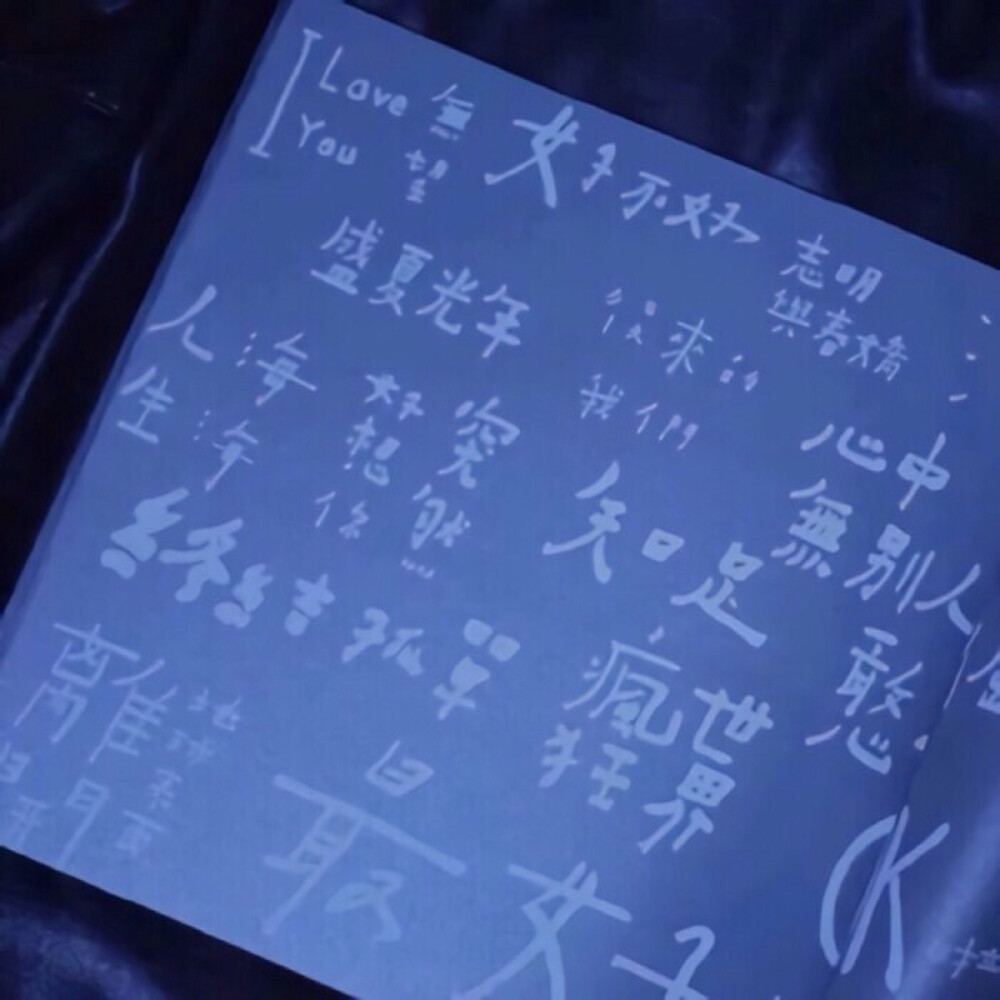 I Love You
無望
好不好
志明與春嬌
盛夏光年
後來的我們
人生海海
好想你
突然...
知足
心中無別人
終結孤單
瘋狂世界
憨
離開地球表面
最
好